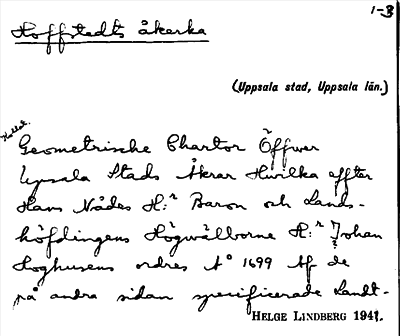 1-3
Hoffstedts åkerka
(Uppsala stad, Uppsala län.)
kallat.
Geometrische Chartor Öffwer
Upsala Stads Åkrar Hwilka effter
Hans Nådes H:r Baron och Lands-
höfdingens Högwälborne H:r Johan
Hoghusens ordres A° 1699 Af de
på andra sidan specificerade Landt-
HELGE LINDBERG 1941.